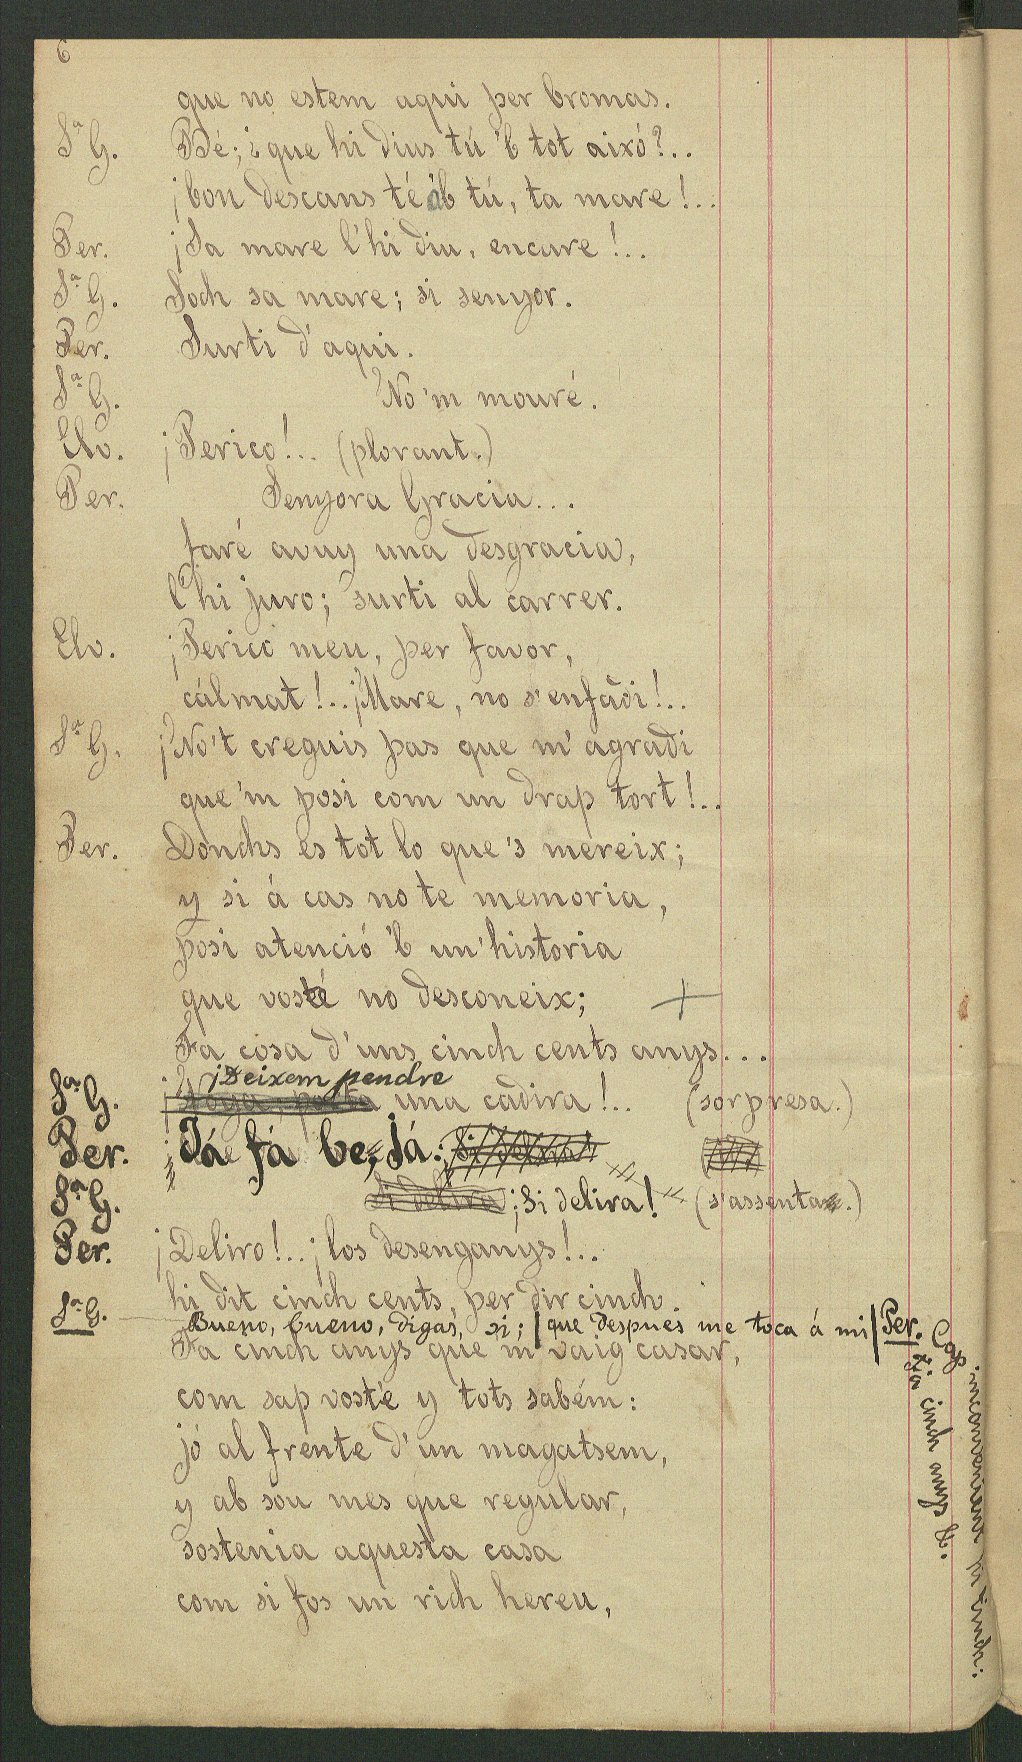 6
que no estem aquí per bromas.
Sª G. Bé; ¿que hi dius tú 'b tot aixó?..
¡bon descans té áb tú, ta mare!..
Per. ¡Sa mare l'hi diu, encare!..
Sª G. Soch sa mare; si senyor.
Per. Surti d'aqui.
Sª G. No'm mouré.
Elv. ¡Perico!.. (plorant.)
Per. Senyora Gracia...
faré avuy una desgracia,
l'hi juro; surti al carrer.
Elv. ¡Perico meu, per favor,
cálmat!..¡Mare, no s'enfadi!..
Sª G. ¡No't creguis pas que m'agradi
que'm posi com un drap tort!..
Per. Donchs es tot lo que's mereix;
y si á cas no te memoria,
posi atenció 'b un'historia
que vosté no desconeix; +
Fa cosa d'uns cinch cents anys...
¡Deixem pendre
Sª G. ¡Noya, porta una cadira!.. (sorpresa.)
Per. ¡Já fá be, já:
Sª G. Si delira ¡Si delira! (s'assenta.)
Per. ¡Deliro!..¡los desenganys!..
hi dit cinch cents, per dir cinch.
Sª G. Bueno, bueno, digas, si; que despues me toca á mi Per.
Fa cinch anys que m vaig casar,
Fa cinch anys &.
com sap vosté y tots sabém:
jó al frente d'un magatsem,
y ab sou mes que regular,
sostenia aquesta casa
com si fos un rich hereu,